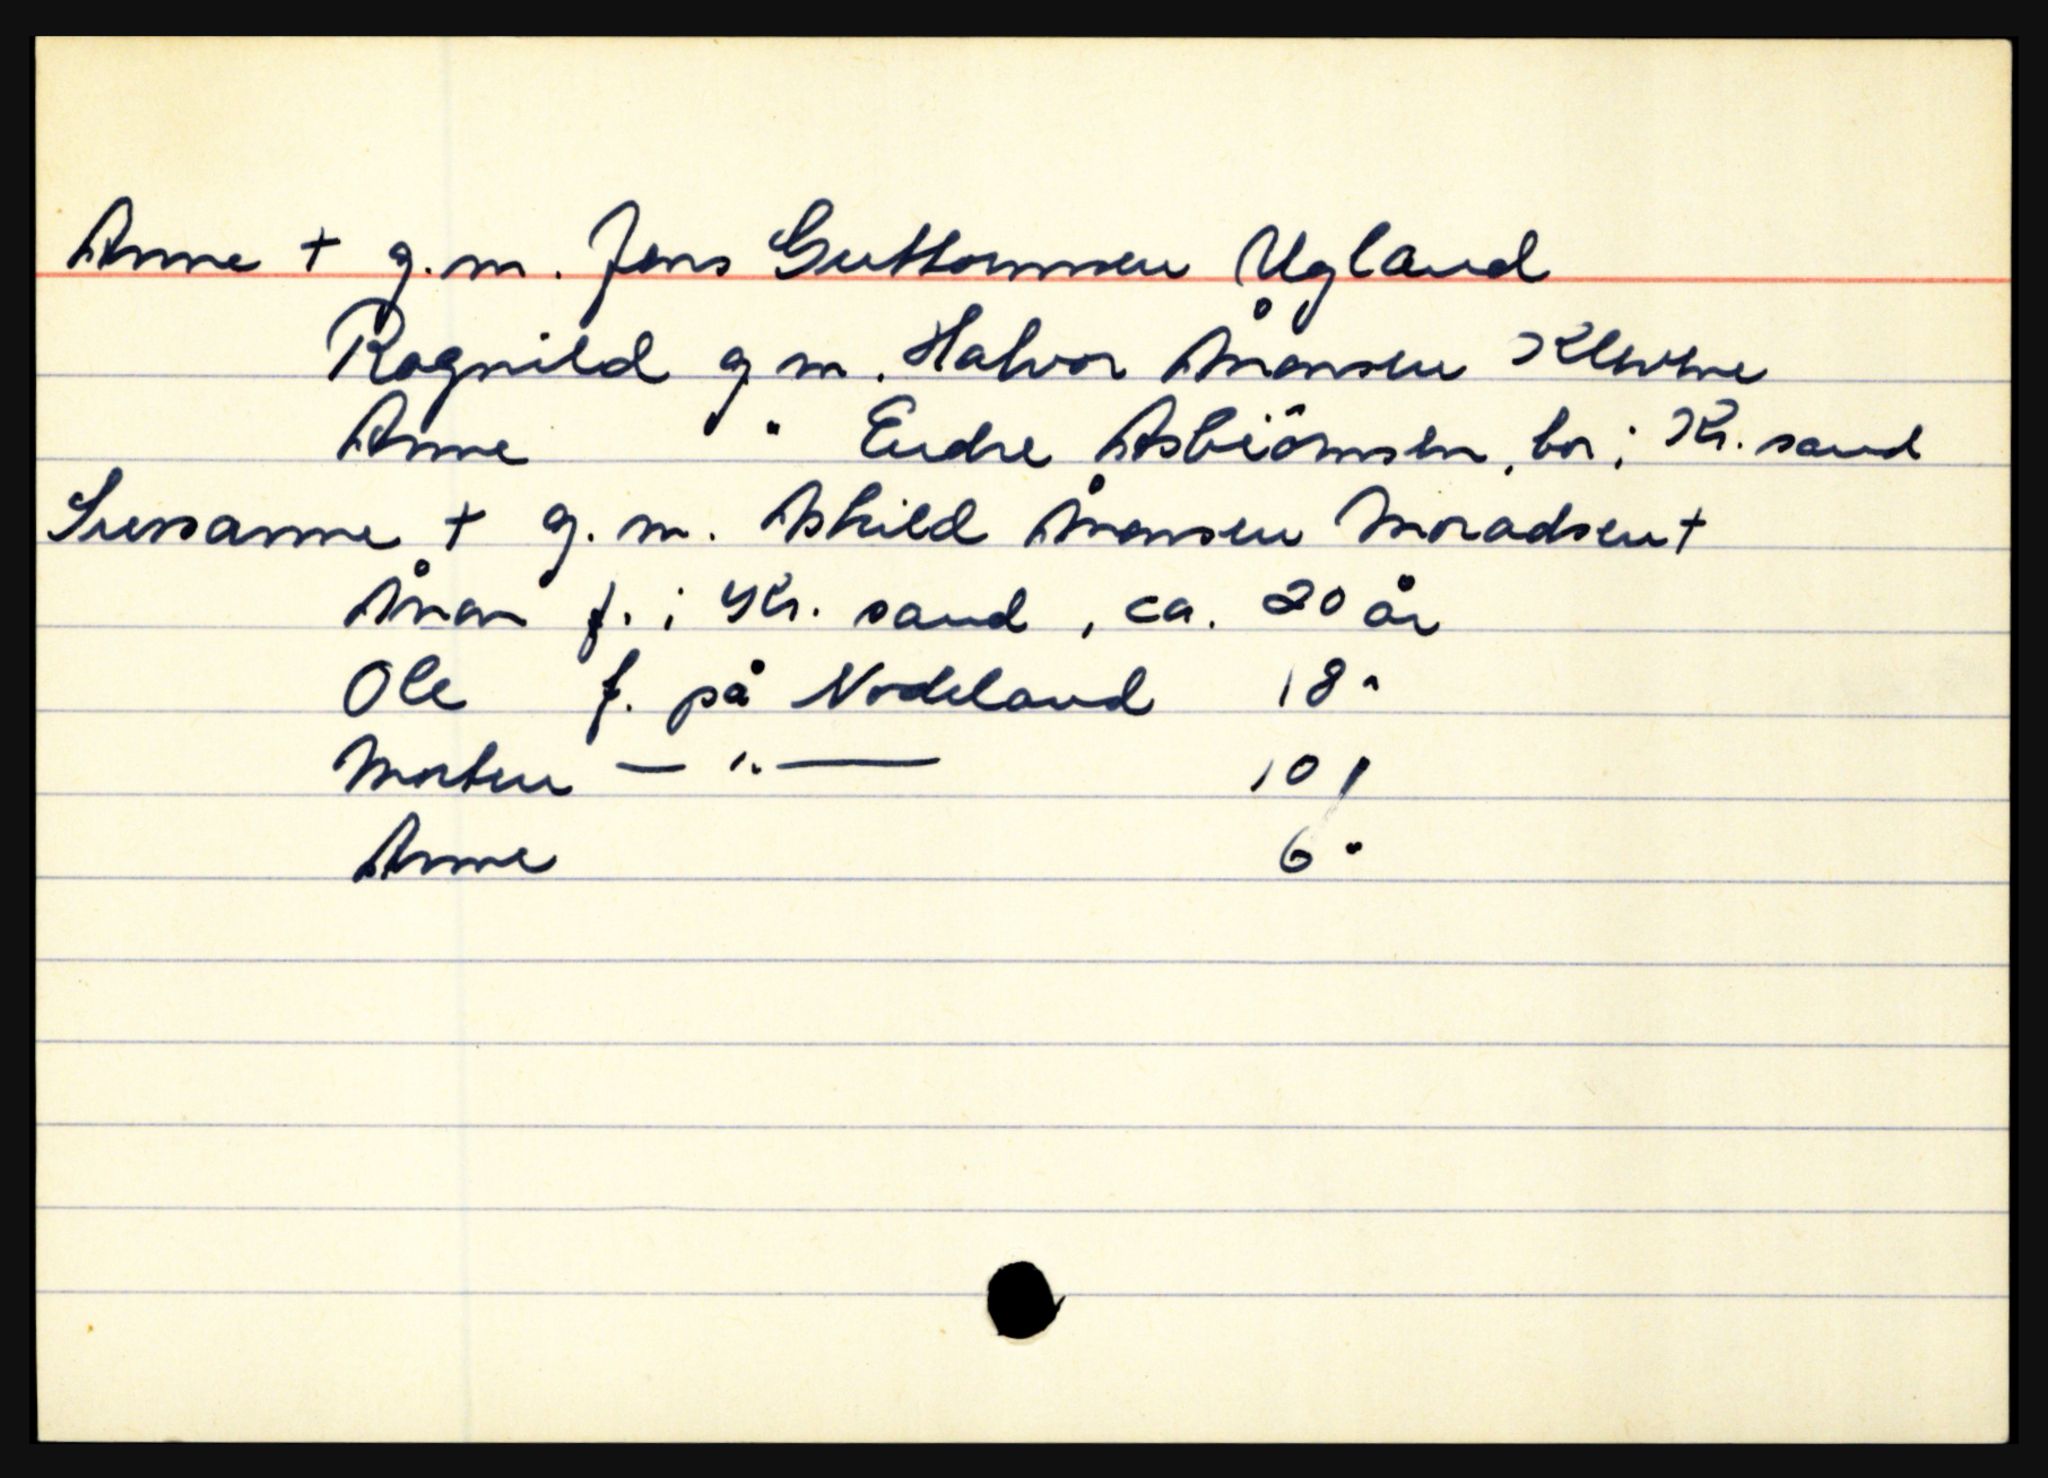 Anne + g. m. Jens Guttormsen Ugland
Ragnild g m. Halvor Ånonsen Klevene
Anne " Endre Asbiörnsen, bor i Kr. sand
Sussanne + g. m. Askild Ånonsen Moradsen +
Ånon f. i Kr. sand, ca. 20 år
Ole f. på Nodeland 18 "
Morten — " — 10 "
Anne 6 "